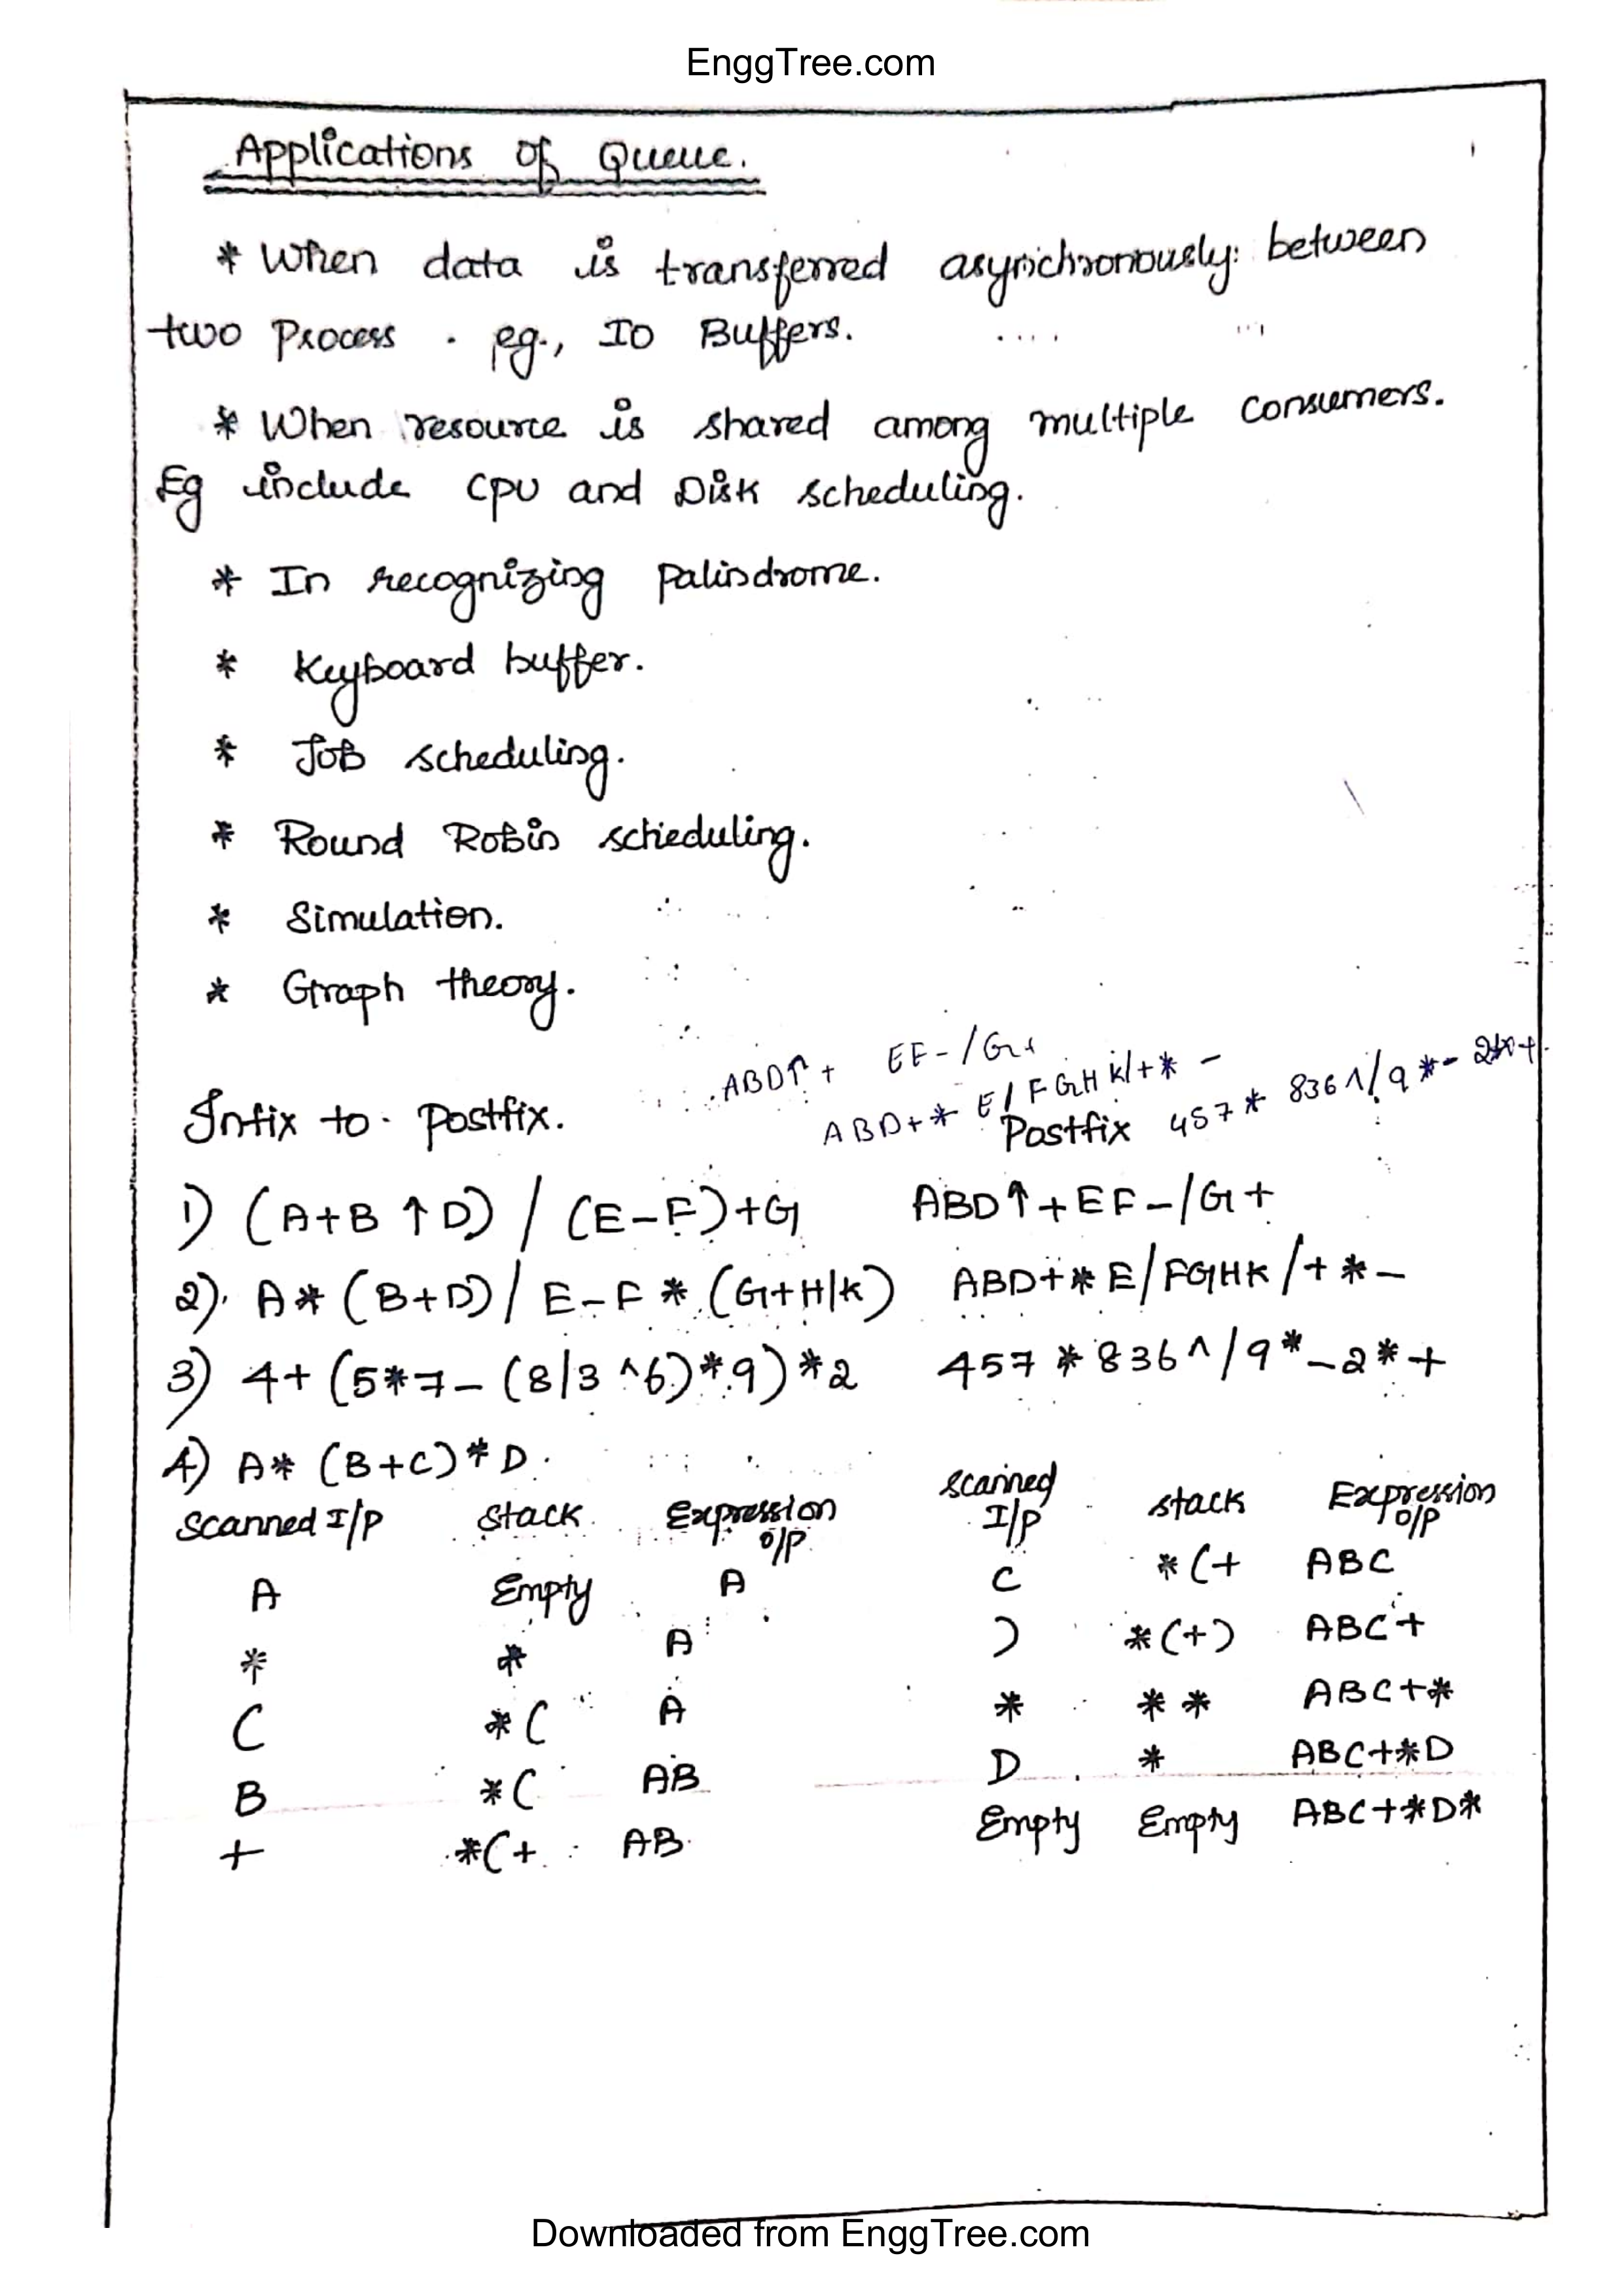 EnggTree.com
Applications of Queue.
* When data is transferred asynchronously between
two Process . eg., IO Buffers.
* When resource is shared among multiple consumers.
Eg include CPU and Disk scheduling.
* In recognizing palindrome.
* Keyboard buffer.
* Job scheduling.
* Round Robin scheduling.
* Simulation.
* Graph theory.
ABD↑+ EF-/G+
ABD+* E/FGHK/+*-
457* 836^/9*-
Infix to Postfix. Postfix
1) (A+B↑D) / (E-F)+G ABD↑+EF-/G+
2) A*(B+D)/E-F*(G+H/K) ABD+*E/FGHK/+*-
3) 4+(5*7-(8/3^6)*9)*2 457*836^/9*-2*+
4) A*(B+C)*D.
Scanned I/P Stack Expression O/P Scanned I/P Stack Expression O/P
A Empty A C *(+ ABC
* * A ) *(+) ABC+
( *( A * ** ABC+*
B *( AB D * ABC+*D
+ *(+ AB Empty Empty ABC+*D*
Downloaded from EnggTree.com